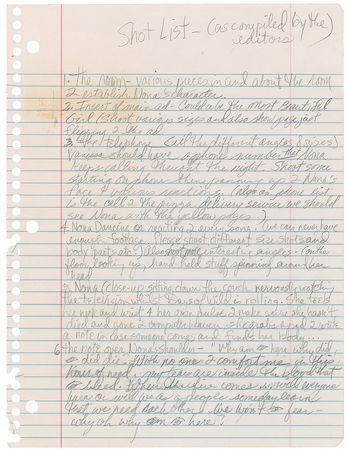 Shot List - (as compiled by the)
editors
1. The Room - various pieces in and about the room
2 establish Nona's character.
2. Insert of main ad - Could u be the most Beautiful
Girl (Shoot various sizes and also show just
flipping 2 the ad
3. The telephone (all the different angles & sizes)
Vanessa should have a phone number that Nona
keeps calling through the night. Shoot some
sitting on phone then panning up 2 Nona's
face & various reactions. (Also on phone list
is the call 2 the pizza delivery service we should
see Nona with the yellow pages.)
4. Nona Dancing or reacting 2 every song. (We can never have
enough footage. Please shoot different size shots and
body parts etc. Also shoot interesting angles -
floor looking up, hand held stuff spinning around her
head
5. Nona (close-up sitting down the couch nervously watching
the television while is rolling. She feels
her neck and wrist 4 her own pulse 2 make sure she hasn't
died and gone 2 computer heaven. She grabs a pad 2 write
a note in case someone comes and finds her body...
6. the note over Nona's shoulder - "Why am here why did
did die. With no one 2 comfort me in this
hour of need my tears are inside the blood that
bleed. When the comes will everyone
or will we as a people someday learn
that we need each other & live won't fear -
why oh why am here?